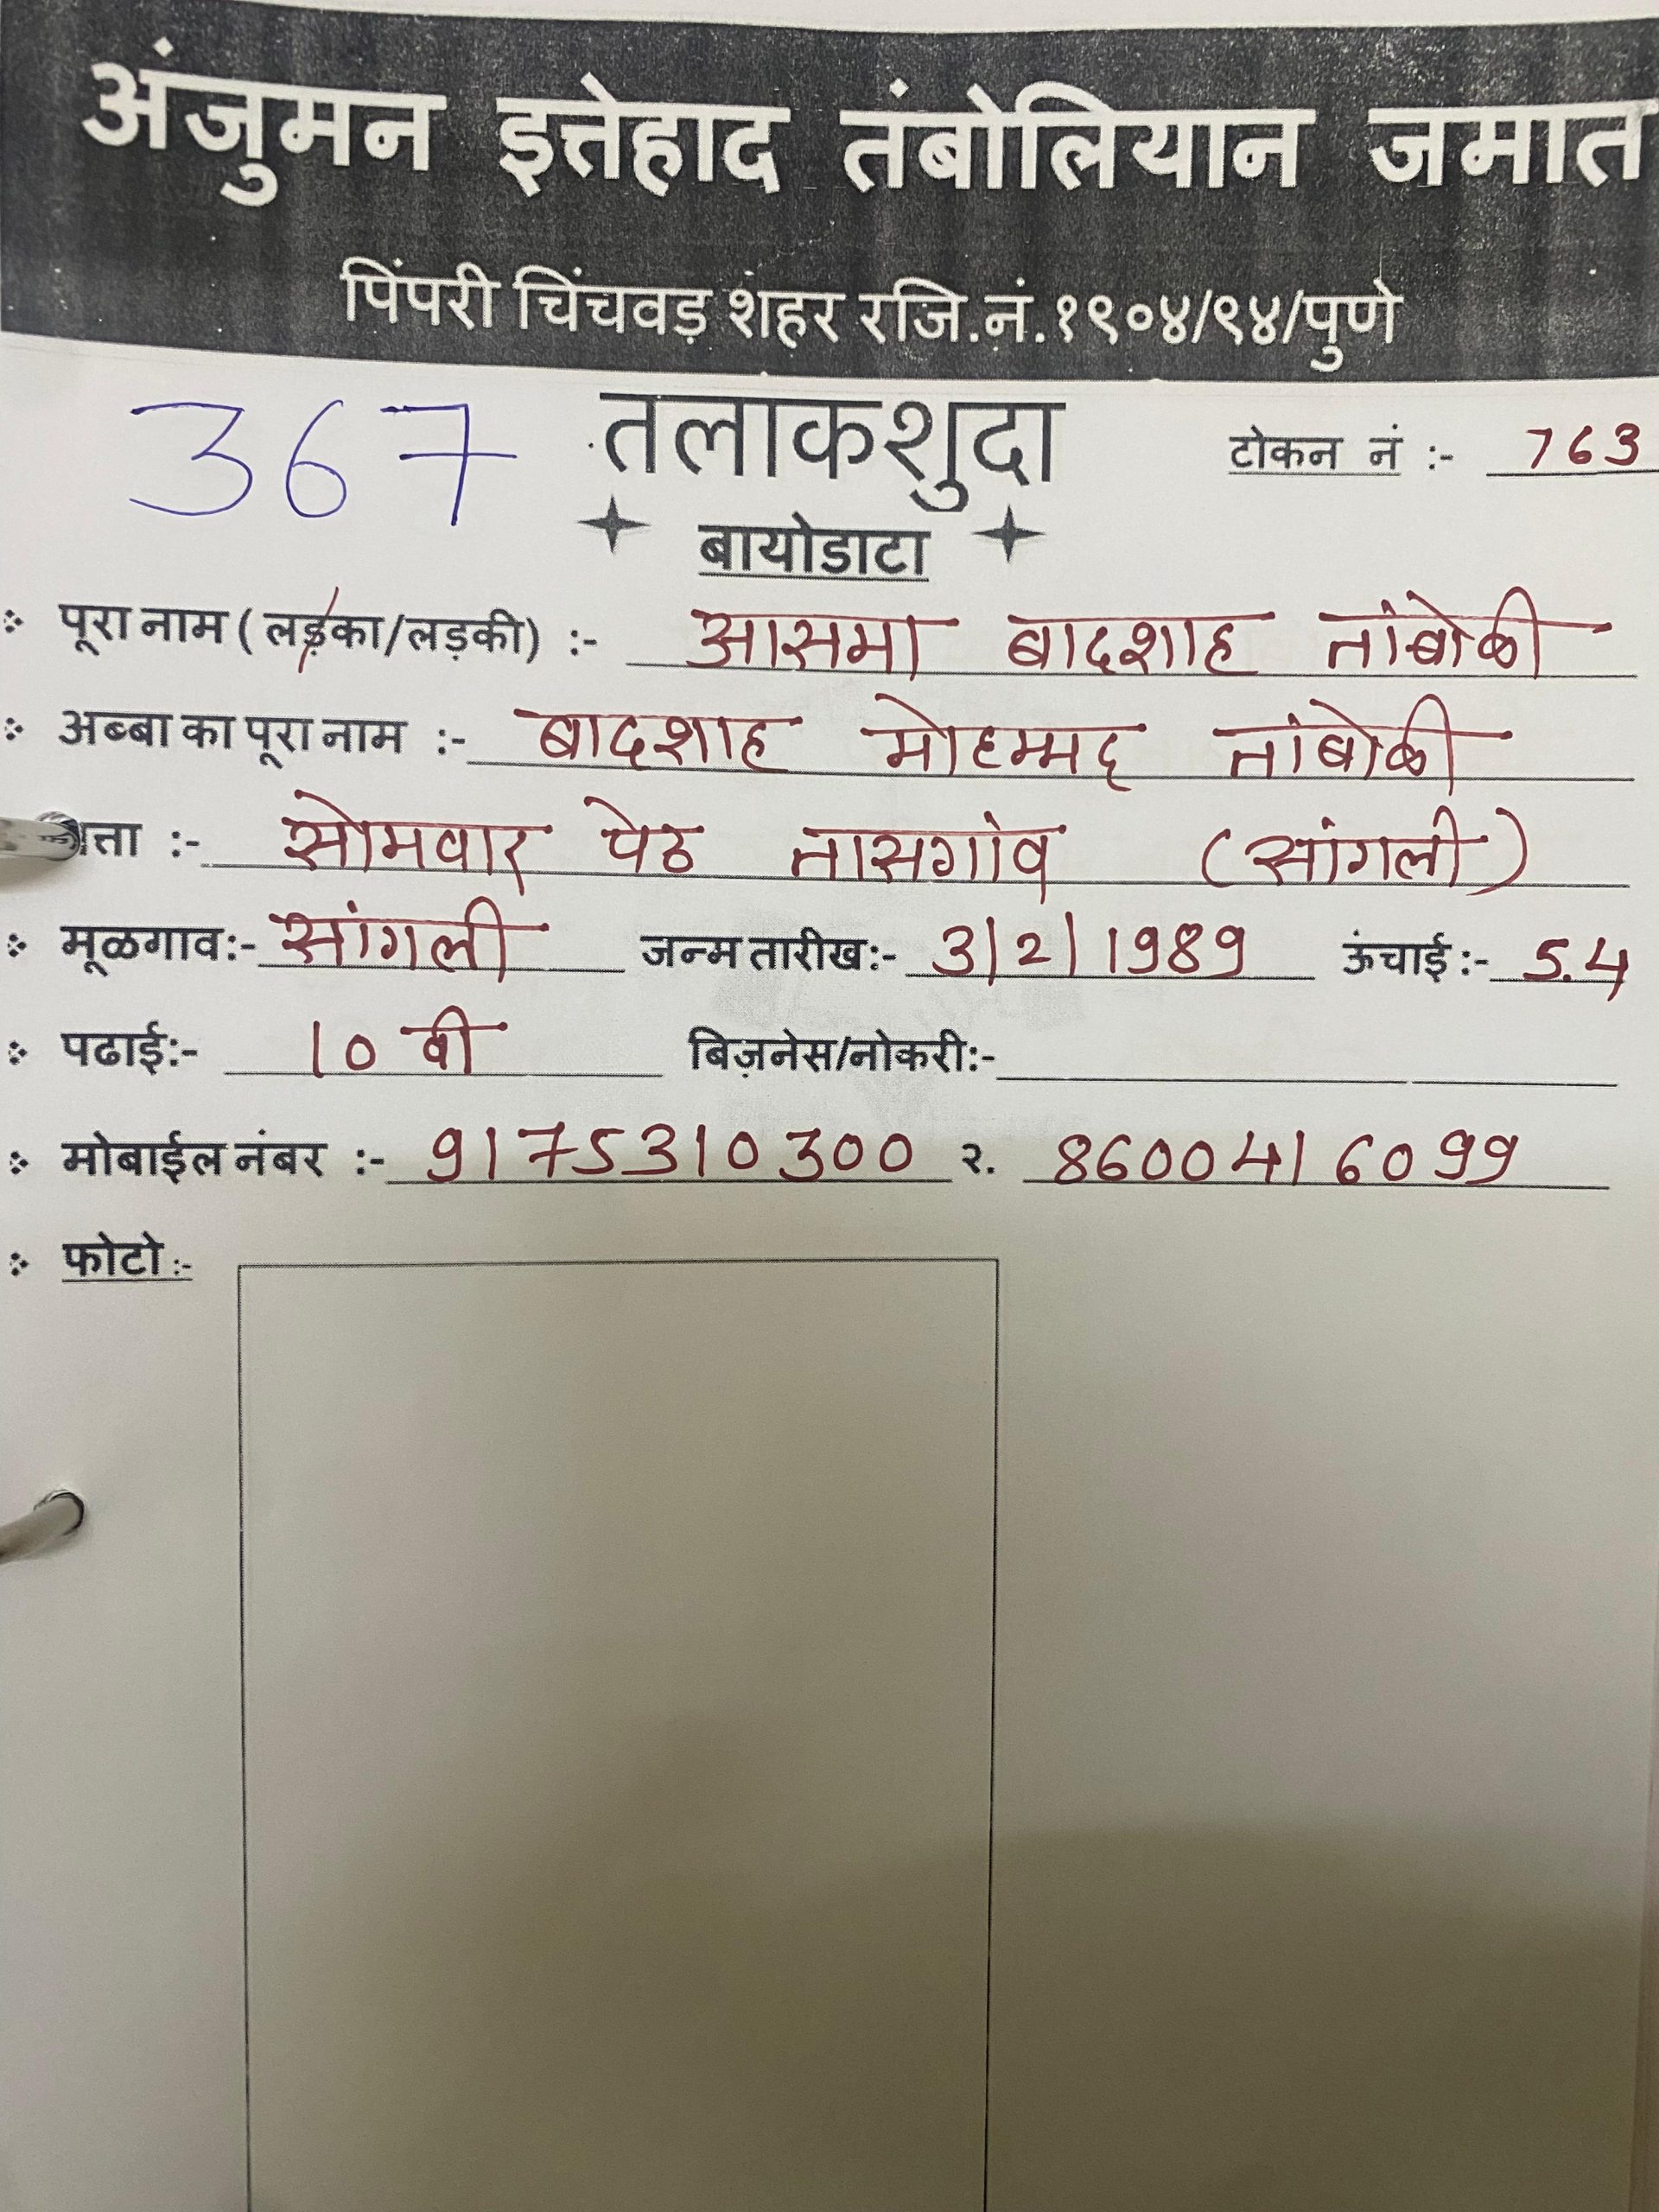 अंजुमन इत्तेहाद तंबोलियान जमात
पिंपरी चिंचवड़ शहर रजि.नं.१९०४/९४/पुणे
367 तलाकशुदा टोकन नं :- 763
बायोडाटा
पूरा नाम ( लड़का/लड़की) :- आसमा बादशाह तांबोळी
अब्बा का पूरा नाम :- बादशाह मोहम्मद तांबोळी
त्ता :- सोमवार पेठ तासगांव (सांगली)
मूळगाव:- सांगली जन्म तारीख:- 3/2/1989 ऊंचाई :- 5.4
पढाई:- 10 वी बिज़नेस/नोकरी:-
मोबाईल नंबर :- 9175310300 २. 8600416099
फोटो :-